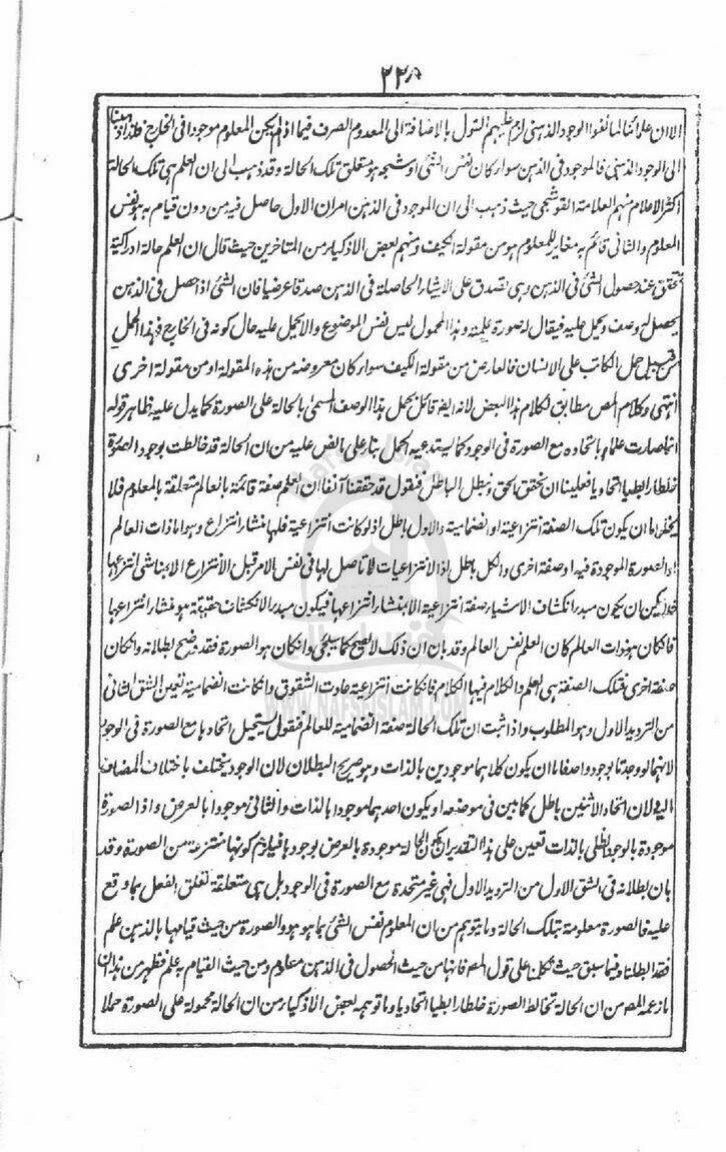 ٢٢٨
الا ان علمائنا لما نفوا الوجود الذهنى لزم عليهم القول بالاضافة الى المعدوم الصرف فيما اذا لم يكن المعلوم موجودا فى الخارج فلذا ذهبنا
الى الوجود الذهنى فالموجود فى الذهن سواء كان نفس الشئ او شبحه هو متعلق تلك الحالة وقد ذهب الى ان العلم هى تلك الحالة
اكثر الاعلام منهم العلامة القوشجى حيث ذهب الى ان الموجود فى الذهن امران الاول حاصل فيه من دون قيام به هو نفس
المعلوم والثانى قائم به مغاير للمعلوم هو من مقولة الكيف ومنهم بعض الاذكياء من المتاخرين حيث قال ان العلم حالة ادراكية
تتحقق عند حصول الشئ فى الذهن وهى تصدق على الاشياء الحاصلة فى الذهن صدقا عرضيا فان الشئ اذا حصل فى الذهن
يحصل له وصف ويحمل عليه فيقال له صورة علمية وهذا المحمول ليس نفس الموضوع والا يحمل عليه حال كونه فى الخارج فهذا الحمل
من قبيل حمل الكاتب على الانسان فالعارض من مقولة الكيف سواء كان معروضه من هذه المقولة او من مقولة اخرى
انتهى وكلام المص مطابق لكلام هذا البعض لانه ايضا قائل بحمل هذا الوصف المسمى بالحالة على الصورة كما يدل عليه ظاهر قوله
انما صارت علما باتحاده مع الصورة فى الوجود كما يستدعيه الحمل بناء على ما نص عليه من ان الحالة قد خالطت بوجود الصورة
خلطا رابطيا اتحاديا فعلينا ان نحقق الحق ونبطل الباطل فنقول قد حققنا آنفا ان العلم صفة قائمة بالعالم متعلقة بالمعلوم فلا
يخلو اما ان يكون تلك الصفة انتزاعية او انضمامية والاول باطل اذ لو كانت انتزاعية فلها منشأ انتزاع وهو اما ذات العالم
او الصورة الموجودة فيه او صفة اخرى والكل باطل اذ الانتزاعيات لا تاصل لها فى نفس الامر قبل الانتزاع الا بمناشى انتزاعها
فلا يمكن ان يكون مبدء انكشاف الاشياء صفة انتزاعية الا بمنشأ انتزاعها فيكون مبدء الانكشاف حقيقة هو منشأ انتزاعها
فان كان هو ذات العالم كان العلم نفس العالم وقد بان ان ذلك لا يصح كما سيجئ وان كان هو الصورة فقد وضح بطلانه وان كان
صفة اخرى فتلك الصفة هى العلم والكلام فيها الكلام فان كانت انتزاعية عادت الشقوق وان كانت انضمامية تعين الشق الثانى
من الترديد الاول وهو المطلوب واذا ثبت ان تلك الحالة صفة انضمامية للعالم فنقول يستحيل اتحادها مع الصورة فى الوجود
لانهما لو وجدتا بوجود واحد فاما ان يكون كلاهما موجودين بالذات وهو صريح البطلان لان الوجود يختلف باختلاف المضاف
اليه ولان اتحاد الاثنين باطل كما بين فى موضعه او يكون احدهما موجودا بالذات والثانى موجودا بالعرض واذ الصورة
موجودة بالوجود الظلى بالذات تعين على هذا التقدير ان يكون الحالة موجودة بالعرض بوجودها فيلزم كونها منتزعة من الصورة وقد
بان بطلانه فى الشق الاول من الترديد الاول فهى غير متحدة مع الصورة فى الوجود بل هى متعلقة تعلق الفعل بما وقع
عليه فالصورة معلومة بتلك الحالة وما يتوهم من ان المعلوم نفس الشئ بما هو هو والصورة من حيث قيامها بالذهن علم
فقد ابطلنا فيما سبق حيث تكلمنا على قول المص فانها من حيث الحصول فى الذهن معلوم ومن حيث القيام به علم فظهر من هذا ان
ما زعمه المص من ان الحالة تخالط الصورة خلطا رابطيا اتحاديا وما توهمه بعض الاذكياء من ان الحالة محمولة على الصورة حملا
WWW.NAFSEISLAM.COM